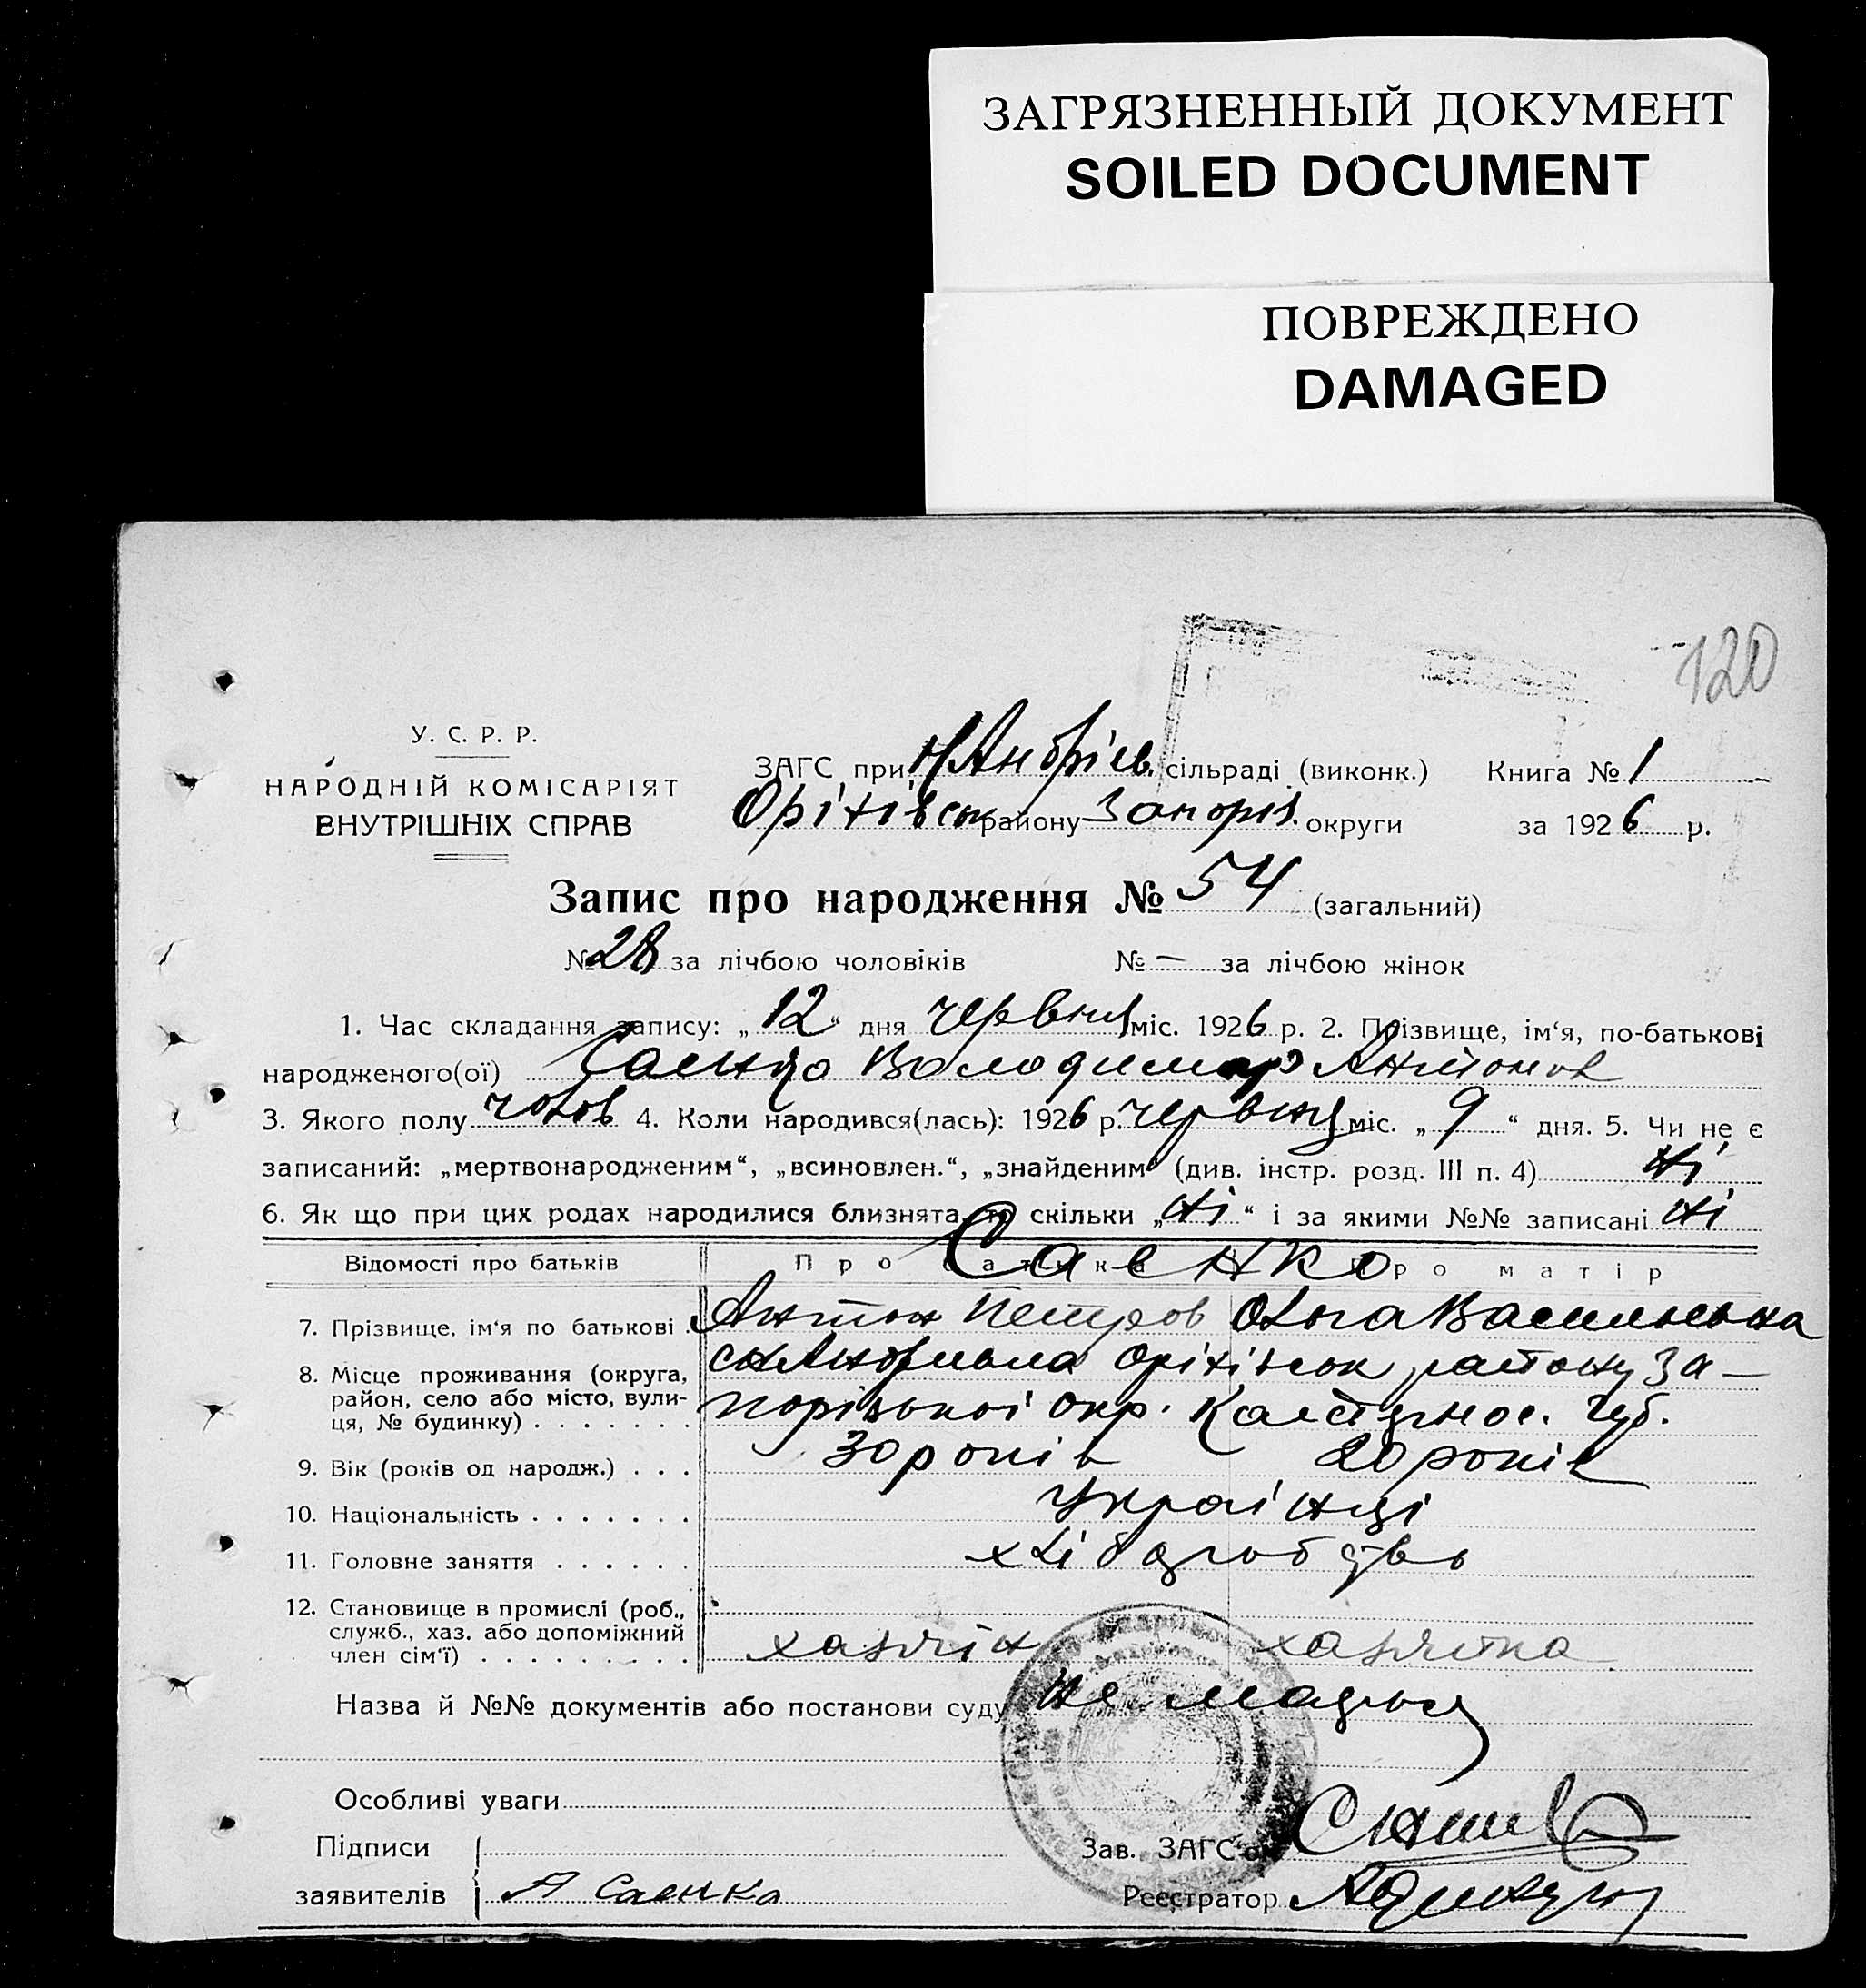 ЗАГРЯЗНЕННЫЙ ДОКУМЕНТ
SOILED DOCUMENT
ПОВРЕЖДЕНО
DAMAGED
120
У. С. Р. Р.
НАРОДНІЙ КОМІСАРІЯТ
ВНУТРІШНІХ СПРАВ
ЗАГС при Н Андріев. сільраді (виконк.) Книга № 1
Оріхівськ району Запоріз. округи за 1926 р.
Запис про народження № 54 (загальний)
№ 28 за лічбою чоловіків № — за лічбою жінок
1. Час складання запису: „12“ дня червня міс. 1926 р. 2. Прізвище, ім‘я, по-батькові
народженого(ої) Саенко Володимир Антонов
3. Якого полу чолов 4. Коли народився(лась): 1926 р. червня міс. „9“ дня. 5. Чи не є
записаний: „мертвонародженим“, „всиновлен.“, „знайденим“ (див. інстр. розд. III п. 4) Ні
6. Як що при цих родах народилися близнята, то скільки „Ні“ і за якими №№ записані Ні
Відомості про батьків Про батька Про матір
Саенко
7. Прізвище, ім‘я по батькові . Антон Петров Ольга Васильевна
8. Місце проживання (округа, район, село або місто, вулиця, № будинку) . . . . . . . Оріхівськ району За–
порізької окр. губ.
9. Вік (років од народж.) . . . 30 років 20 років
10. Національність . . . . . . . Українці
11. Головне заняття . . . . . . хліборобство
12. Становище в промислі (роб.,
служб., хаз. або допоміжний
член сім‘ї) . . . . . . . . . хазяїн хазяйка
Назва й №№ документів або постанови суду не мається
Особливі уваги
Підписи Зав. ЗАГС‘ом
заявителів А Саенко Реєстратор